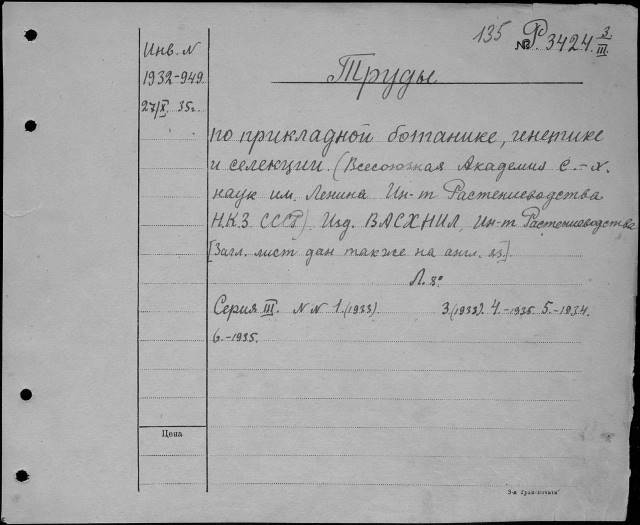 135 № Р. 3424 3/III
Инв. N
1932-949
27/X 35г.
Труды
по прикладной ботанике, генетике
и селекции. (Всесоюзная Академия С.-Х.
наук им. Ленина Ин-т Растениеводства
Н.К.З. СССР) Изд. ВАСХНИЛ, Ин-т Растениеводства
[Загл. лист дан также на англ. яз.].
Л. 8°
Серия III. N N 1.(1933) 3(1933). 4.-1935. 5.-1934.
6.-1935.
Цена